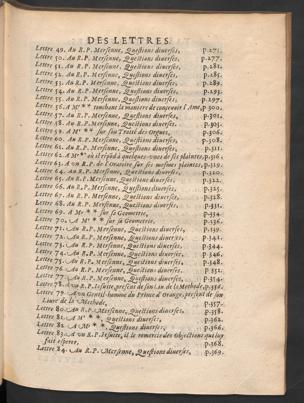 DES LETTRES.
Lettre 49. Au R. P. Mersenne, Questions diverses, p.271.
Lettre 50. Au R. P. Mersenne, Questions diverses, p.277.
Lettre 51. Au R. P. Mersenne, Questions diverses, p.281.
Lettre 52. Au R. P. Mersenne, Questions diverses, p.285.
Lettre 53. Au R. P. Mersenne, Questions diverses, p.289.
Lettre 54. Au R. P. Mersenne, Questions diverses, p.295.
Lettre 55. Au R. P. Mersenne, Questions diverses, p.297.
Lettre 56. A Mr ** touchant la maniere de concevoir l'Ame, p.300.
Lettre 57. Au R. P. Mersenne, Questions diverses, p.301.
Lettre 58. Au R. P. Mersenne, Questions diverses, p.305.
Lettre 59. A Mr ** sur son Traité des Orgues, p.306.
Lettre 60. Au R. P. Mersenne, Questions diverses, p.308.
Lettre 61. Au R. P. Mersenne, Questions diverses, p.311.
Lettre 62. A Mr ** où il répōd à quelques-unes de ses plaintes, p.316.
Lettre 63. A un R. P. de l'Oratoire sur ses mesmes plaintes, p.319.
Lettre 64. Au R. P. Mersenne, Questions diverses, p.320.
Lettre 65. Au R. P. Mersenne, Questions diverses, p.322.
Lettre 66. Au R. P. Mersenne, Questions diverses, p.325.
Lettre 67. Au R. P. Mersenne, Questions diverses, p.328.
Lettre 68. Au R. P. Mersenne, Questions diverses, p.331.
Lettre 69. A Mr ** sur sa Geometrie, p.334.
Lettre 70. A Mr ** sur sa Geometrie, p.336.
Lettre 71. Au R. P. Mersenne, Questions diverses, p.339.
Lettre 72. Au R. P. Mersenne, Questions diverses, p.341.
Lettre 73. Au R. P. Mersenne, Questions diverses, p.344.
Lettre 74. Au R. P. Mersenne, Questions diverses, p.346.
Lettre 75. Au R. P. Mersenne, Questions diverses, p.348.
Lettre 76. Au R. P. Mersenne, Questions diverses, p.351.
Lettre 77. Au R. P. Mersenne, Questions diverses,
Lettre 78. A un R. P. Iesuite, present de son Liu. de la Methode, p.356.
Lettre 79. A un Gentil-homme du Prince d'Orange, present de son
Livre de la Methode, p.357.
Lettre 80. Au R. P. Mersenne, Questions diverses, p.358.
Lettre 81. A Mr **, Questions diverses, p.362.
Lettre 82. A Mr **, Questions diverses, p.366.
Lettre 83. A un R. P. Iesuite, il le remercie des Objections qui luy
fait esperer, p.368.
Lettre 84. Au R. P. Mersenne, Questions diverses, p.369.